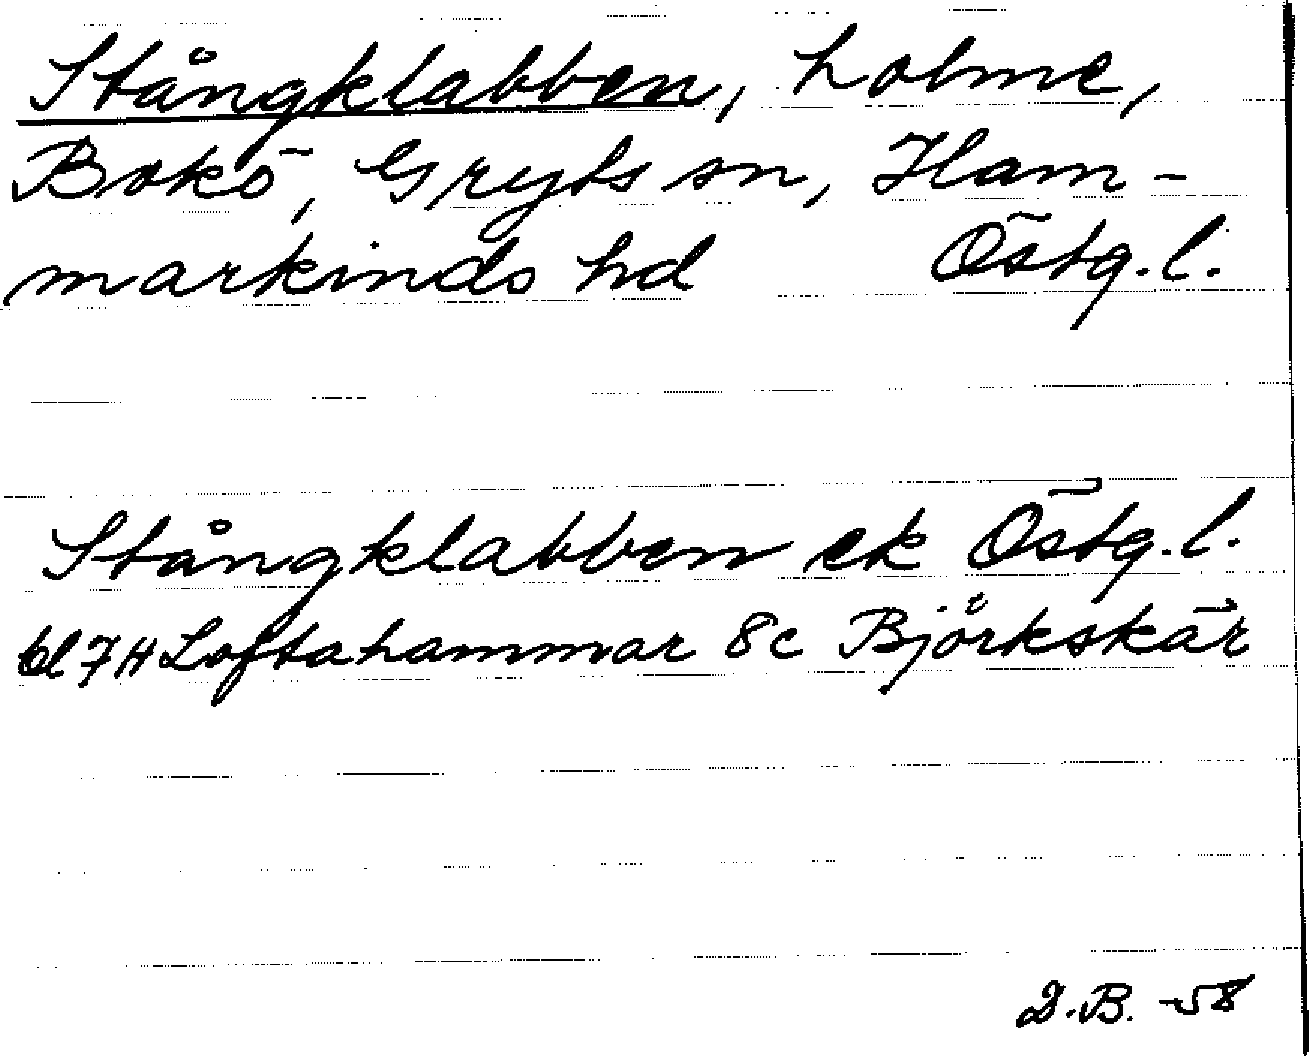 Stångklabben, holme,
Bokö, Gryts sn, Ham-
markinds hd Östg. l.
Stångklabben ek Östg. l.
bl 7H Loftahammar 8c Björkskär
D.B. -58